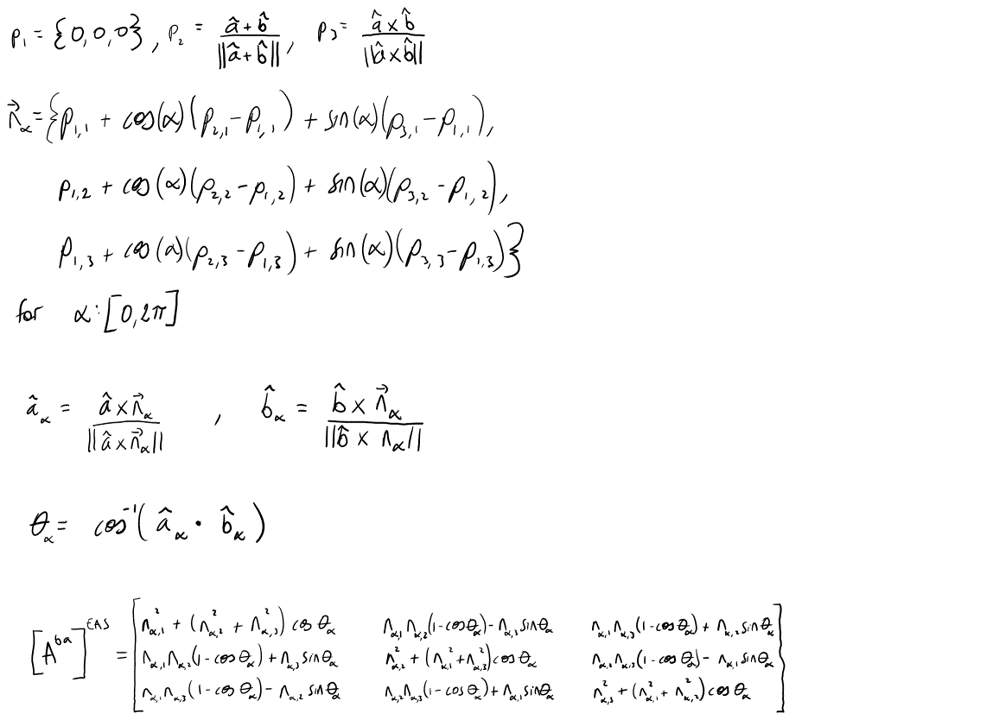 p₁ = {0,0,0}, p₂ = (â + b̂)/||â + b̂||, p₃ = (â × b̂)/||â × b̂||
n⃗_α = {p₁,₁ + cos(α)(p₂,₁ − p₁,₁) + sin(α)(p₃,₁ − p₁,₁),
p₁,₂ + cos(α)(p₂,₂ − p₁,₂) + sin(α)(p₃,₂ − p₁,₂),
p₁,₃ + cos(α)(p₂,₃ − p₁,₃) + sin(α)(p₃,₃ − p₁,₃)}
for α:[0,2π]
â_α = (â × n⃗_α)/||â × n⃗_α|| , b̂_α = (b̂ × n⃗_α)/||b̂ × n_α||
θ_α = cos⁻¹(â_α • b̂_α)
[A^{ba}]^{EAS} = [n²_{α,1} + (n²_{α,2} + n²_{α,3}) cos θ_α   n_{α,1} n_{α,2}(1 − cos θ_α) − n_{α,3} sin θ_α   n_{α,1} n_{α,3}(1 − cos θ_α) + n_{α,2} sin θ_α
n_{α,1} n_{α,2}(1 − cos θ_α) + n_{α,3} sin θ_α   n²_{α,2} + (n²_{α,1} + n²_{α,3}) cos θ_α   n_{α,2} n_{α,3}(1 − cos θ_α) − n_{α,1} sin θ_α
n_{α,1} n_{α,3}(1 − cos θ_α) − n_{α,2} sin θ_α   n_{α,2} n_{α,3}(1 − cos θ_α) + n_{α,1} sin θ_α   n²_{α,3} + (n²_{α,1} + n²_{α,2}) cos θ_α]